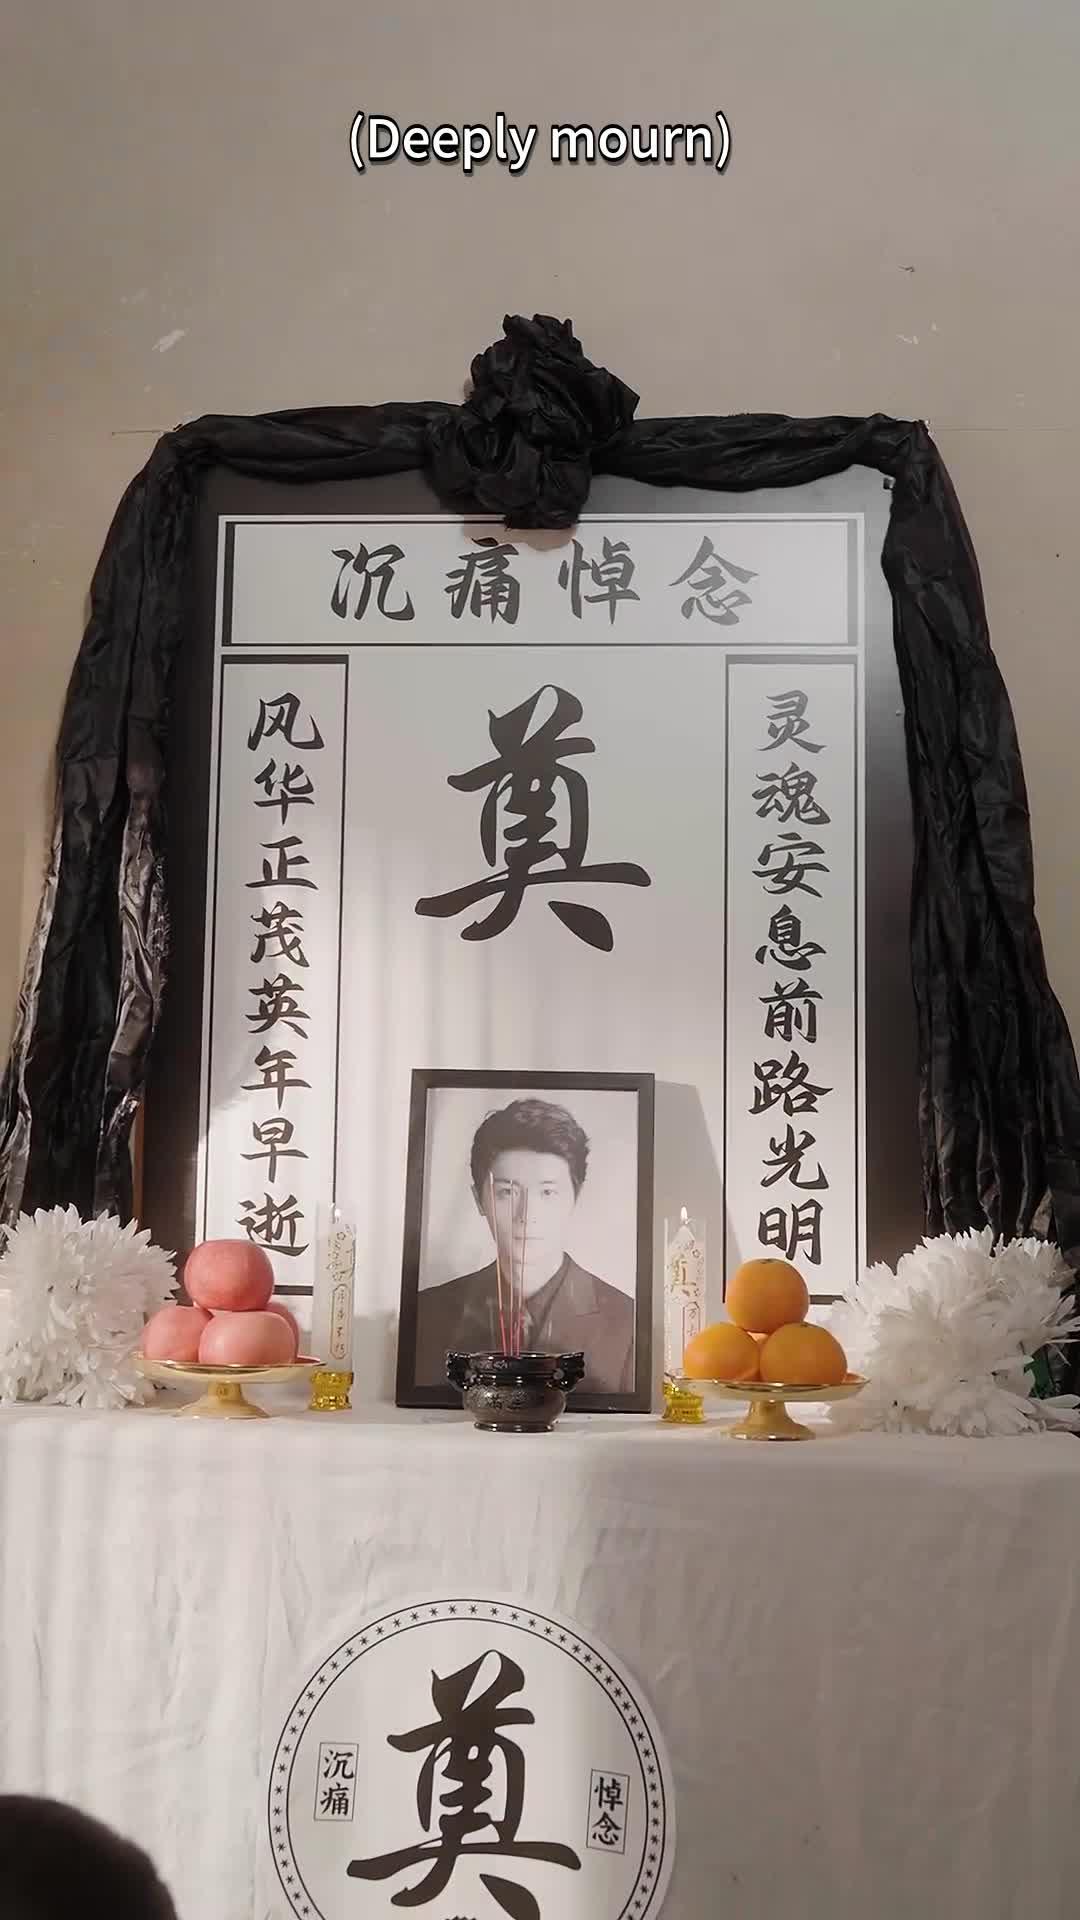 (Deeply mourn)
沉痛悼念
奠
风华正茂英年早逝
灵魂安息前路光明
奠
沉痛
悼念